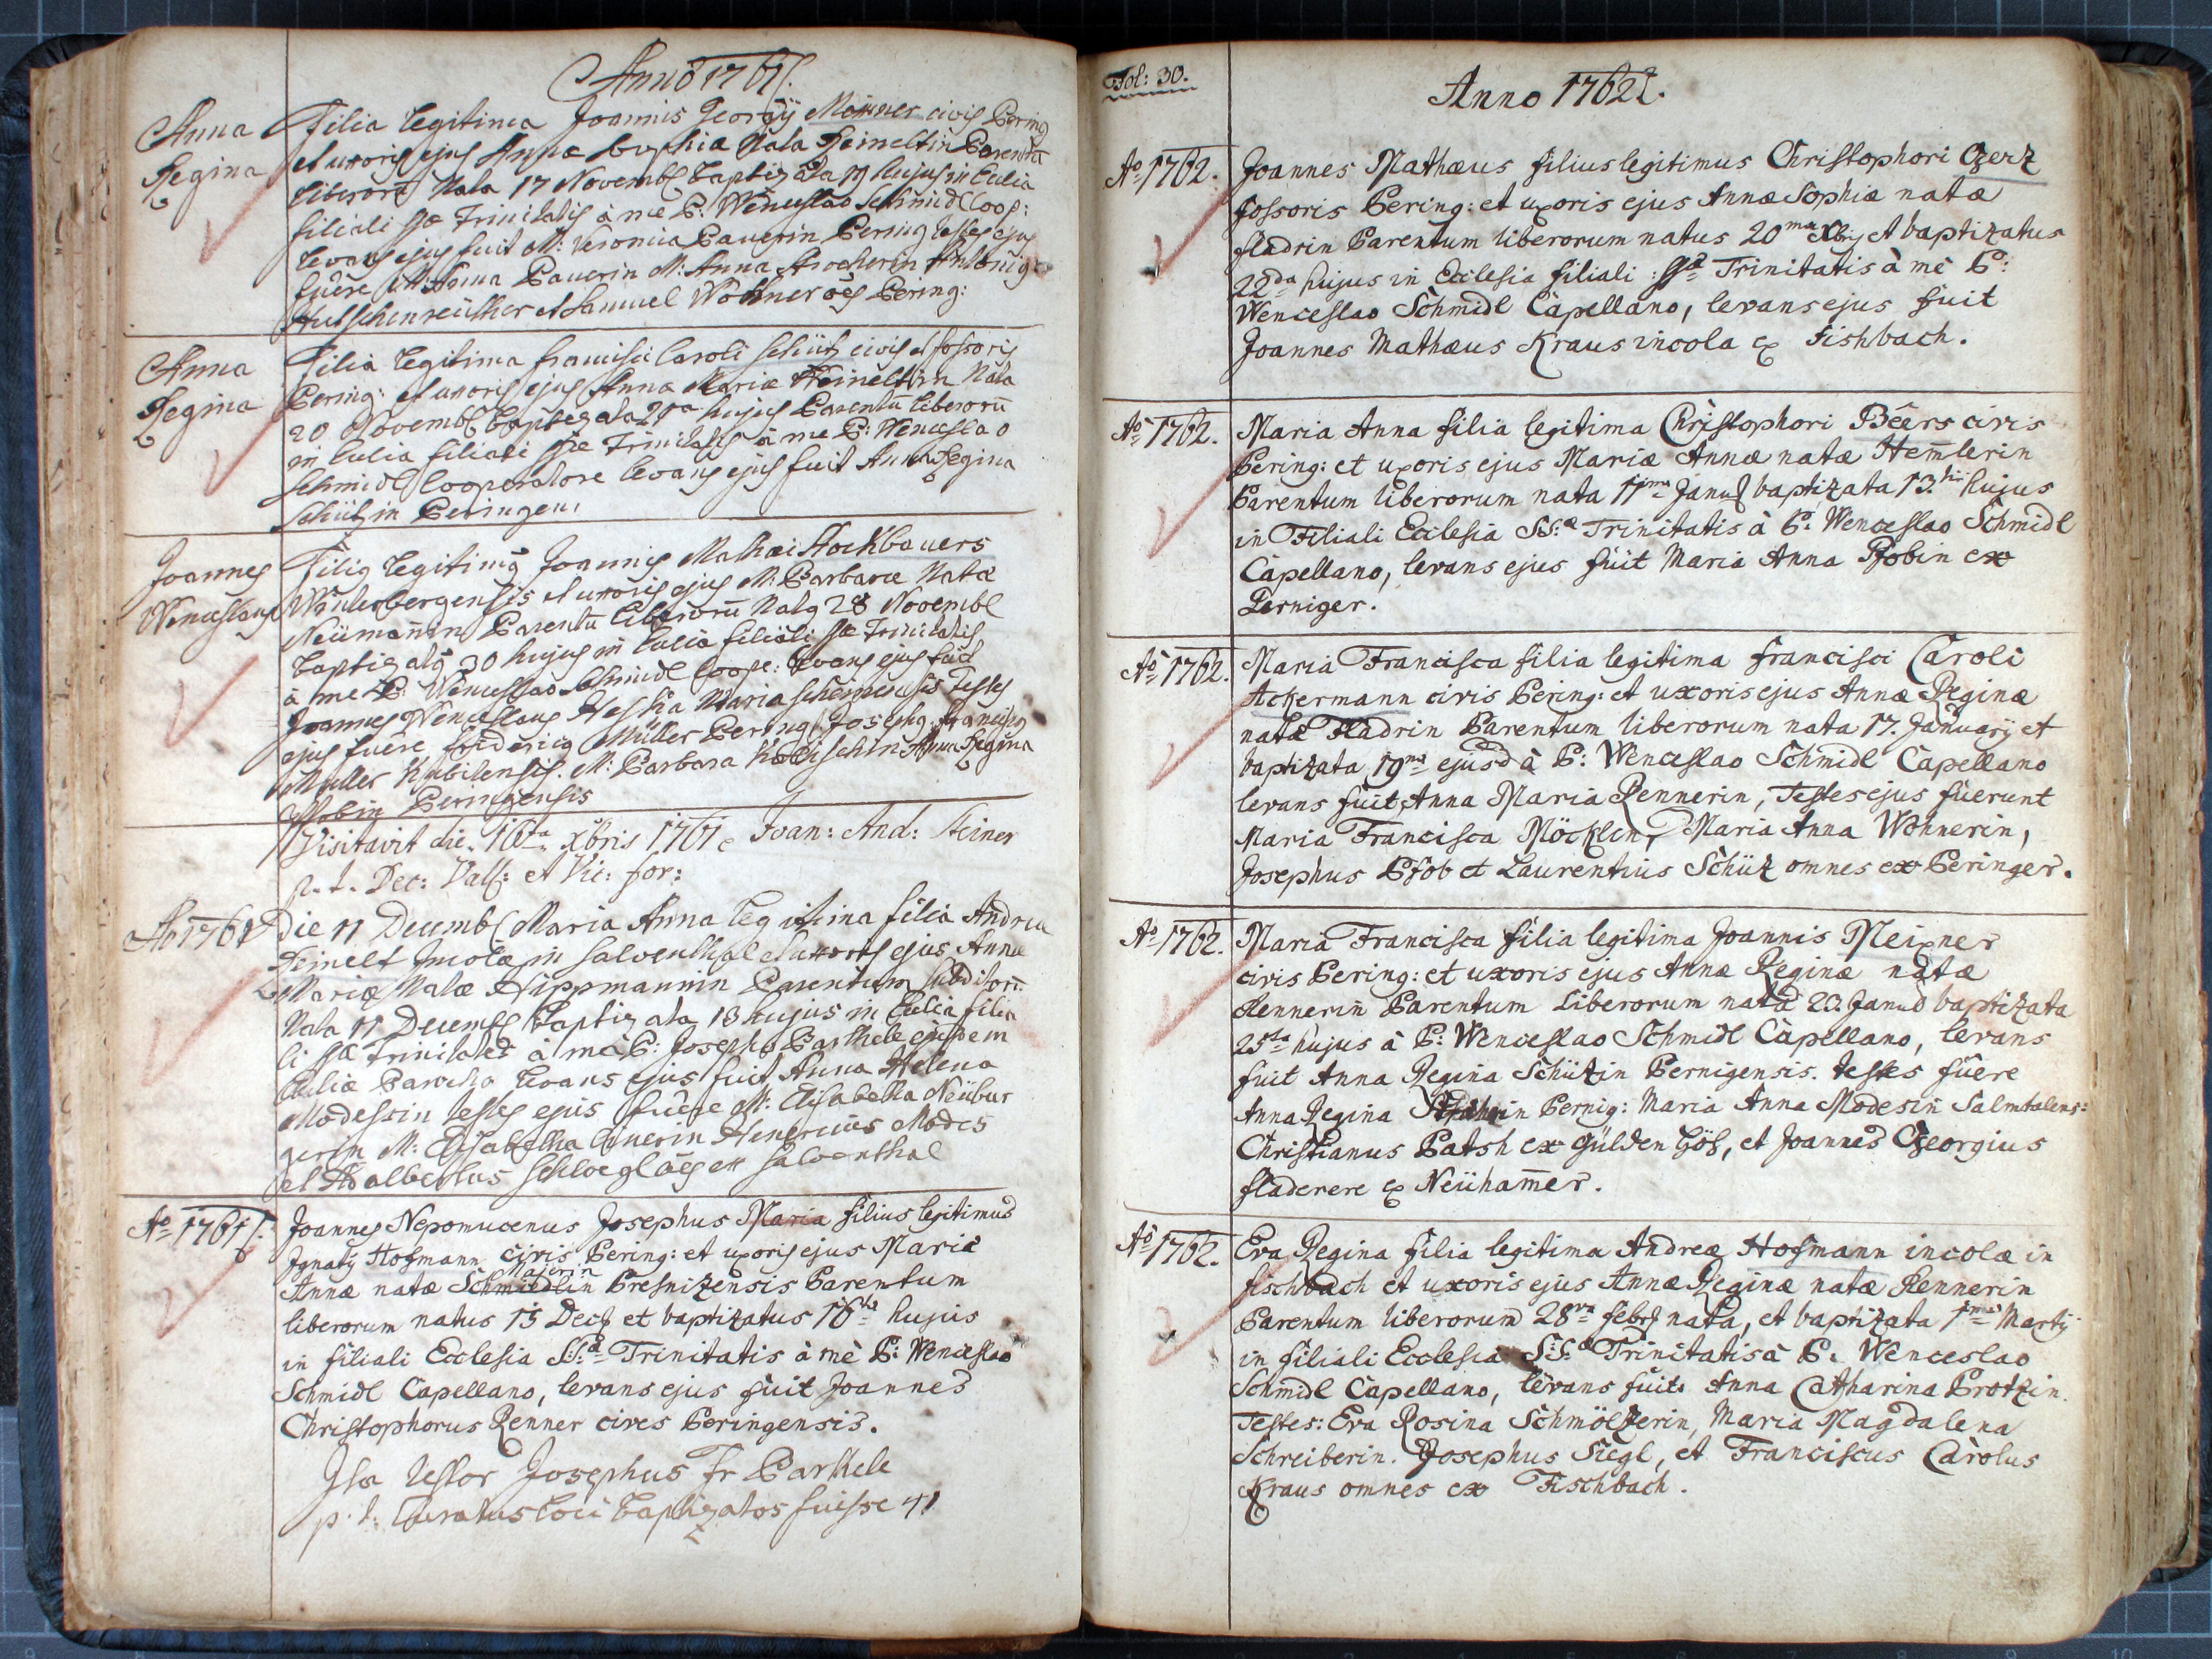 Anno 1761.
Anna
Regina
Filia legitima Joannis Georgÿ Meixner civis Pering
et uxoris ejus Annæ Sophiæ Nata Reineltin Parentū
liberorū Nata 17 Novemb baptizata 19 hujus in Eclia
filiali SSæ Trinitatis à me P: Wenceslao Schmidl Coop:
levans ejus fuit M: Veronica Pauerin Pering testes ejus
fuêre M: Anna Pauerin M: Anna
Hutschenreüther et Samuel Wohner oēs Pering:
Anna
Regina
Filia legitima Francisci Caroli Schütz civis et fossoris
Pering: et uxoris ejus Annæ Mariæ Reineltin Nata
20 Novemb baptizata 21a hujus Parentū liberorū
in Eclia filiali SSæ Trinitatis à me P: Wenceslao
Schmidl Cooperatore levans ejus fuit Anna Regina
Schützin Peringen:
Joannes
Wenceslaus
Filig legitimg Joannis Mathæi Stockbauers
Winterbergensis et uxoris ejus M: Barbaræ Natæ
Neümanin Parentū liberorū Natg 28 Novemb
baptizatg 30 hujus in Eclia filiali SSæ Trinitatis
à me P: Wenceslao Schmidl Coope: levans ejus fuit
Joannes Wenceslaus Maria testes
ejus fuêre Fridericg Müller Pering Josephg Franciscg
Müller M: Barbara Anna Regina
Peringensis
Visitavit die 16ta Xbris 1761 Joan: And: Steiner
p. t. Dec: Vall: et Vic: for:
Ao 1761
Die 11 Decemb Maria Anna legitima filia Andreæ
Reinelt Incolæ in Salventhal et uxoris ejus Annæ
Mariæ Natæ Hippmannin Parentum subditorū
Nata 11 Decemb baptizata 13 hujus in Eclia filia
li SSæ Trinitatis à me P: Josepho Barthele ejusdem
Ecliæ Parocho levans ejus fuit Anna Helena
Modessin testes ejus fuêre M: Elisabetha Neübur
gerin M: Elisabetha Henericus Modes
et Adalbertus Schloegl oēs ex Salventhal
Ao 1761.
Joannes Nepomucenus Josephus Maria filius legitimus
Jgnatÿ Hofmann civis Pering: et uxoris ejus Mariæ
Majerin
Annæ natæ Schmiedlin Presnizensis Parentum
liberorum natus 15 Dec et baptizatus 16ta hujus
in filiali Ecclesia S:S:æ Trinitatis à mè P: Wenceslao
Schmidl Capellano, levans ejus fuit Joannes
Christophorus Renner cives Peringensis.
Ita testor Josephus Fr Barthele
p. t. Curatus loci baptizatos fuisse 41
Fol: 30.
Anno 1762.
Ao 1762.
Joannes Mathæus filius legitimus Christophori Czerz
fossoris Pering: et uxoris ejus Annæ Sophiæ natæ
fladrin Parentum liberorum natus 20ma Xbris et baptizatus
22da hujus in Ecclesia filiali: SSæ Trinitatis à mè P:
Wenceslao Schmidl Capellano, levans ejus fuit
Joannes Mathæus Kraus incola ex Fishbach.
Ao 1762.
Maria Anna filia legitima Christophori Beers civis
Pering: et uxoris ejus Mariæ Annæ natæ Hem̄lerin
Parentum liberorum nata 11ma Janu baptizata 13.tii hujus
in Filiali Ecclesia S:S:æ Trinitatis à P: Wenceslao Schmidl
Capellano, levans ejus fuit Maria Anna Pfobin ex
Perniger.
Ao 1762.
Maria Francisca filia legitima Francisci Caroli
Ackermann civis Pering: et uxoris ejus Annæ Reginæ
natæ Fladrin Parentum liberorum nata 17. Januarÿ et
baptizata 19na ejusd à P: Wenceslao Schmidl Capellano
levans fuit Anna Maria Rennerin, Testes ejus fuerunt
Maria Francisca Möcklin, Maria Anna Wohnerin,
Josephus Pfob et Laurentius Schüz omnes ex Peringer.
Ao 1762.
Maria Francisca filia legitima Joannis Meixner
civis Pering: et uxoris ejus Annæ Reginæ natæ
Rennerin Parentum liberorum nata 23. Janu baptizata
25ta hujus à P: Wenceslao Schmidl Capellano, levans
fuit Anna Regina Schützin Pernigensis. testes fuêre
Anna Regina Pernig: Maria Anna Modesin Salmtalens:
Christianus Patsh ex Gülden Höh, et Joannes Georgius
fladerere ex Neüham̄er.
Ao 1762.
Eva Regina filia legitima Andreæ Hofmann incolæ in
fischbach et uxoris ejus Annæ Reginæ natæ Rennerin
Parentum liberorum 28va febr nata, et baptizata 1ma Martÿ
in filiali Ecclesia S:S:æ Trinitatis à P: Wenceslao
Schmidl Capellano, levans fuit: Anna Catharina Protzin.
Testes: Eva Rosina Schmölzerin, Maria Magdalena
Schreiberin. Josephus Siegl, et Franciscus Carolus
Kraus omnes ex Fischbach.